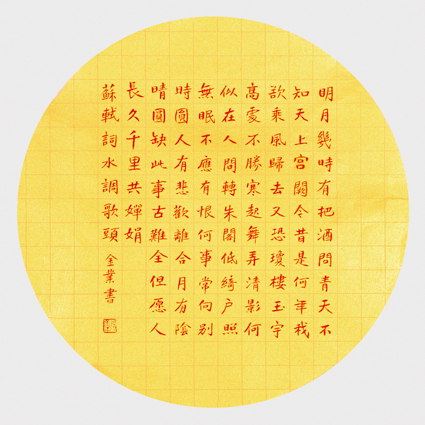 明月幾時有把酒問青天不
知天上宮闕今昔是何年我
欲乘風歸去又恐瓊樓玉宇
高處不勝寒起舞弄清影何
似在人間轉朱閣低綺户照
無眠不應有恨何事常向别
時圓人有悲歡離合月有陰
晴圓缺此事古難全但愿人
長久千里共嬋娟
蘇軾詞水調歌頭 金業書